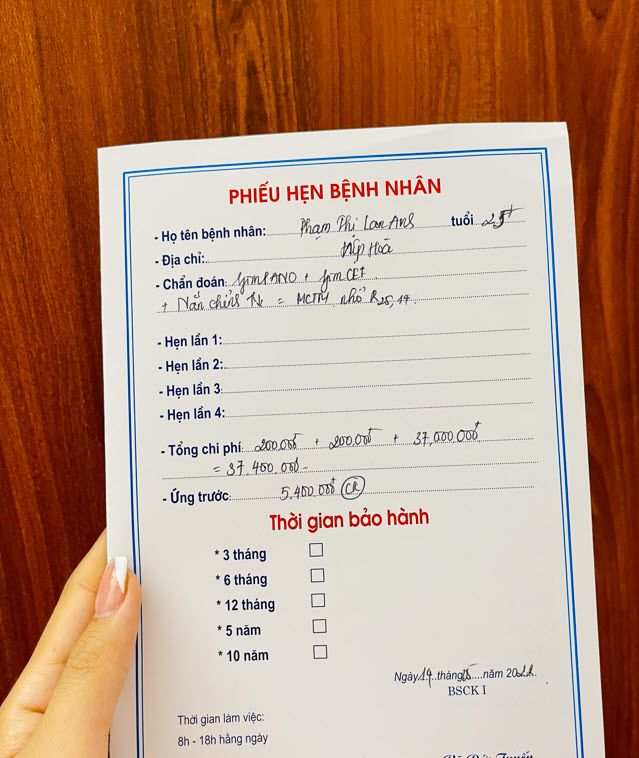 PHIẾU HẸN BỆNH NHÂN
- Họ tên bệnh nhân: Phạm Thị Lan Anh tuổi 25t
- Địa chỉ: Hiệp Hoà
- Chẩn đoán: Film PANO + film CET
+ Nắn chỉnh = MCTM nhổ R25, 14.
- Hẹn lần 1:
- Hẹn lần 2:
- Hẹn lần 3:
- Hẹn lần 4:
- Tổng chi phí: 200.000đ + 200.000đ + 37.000.000đ
= 37.400.000đ
- Ứng trước: 5.400.000đ
Thời gian bảo hành
* 3 tháng
* 6 tháng
* 12 tháng
* 5 năm
* 10 năm
Ngày 14 tháng 5 năm 2022.
BSCK I
Thời gian làm việc:
8h - 18h hằng ngày